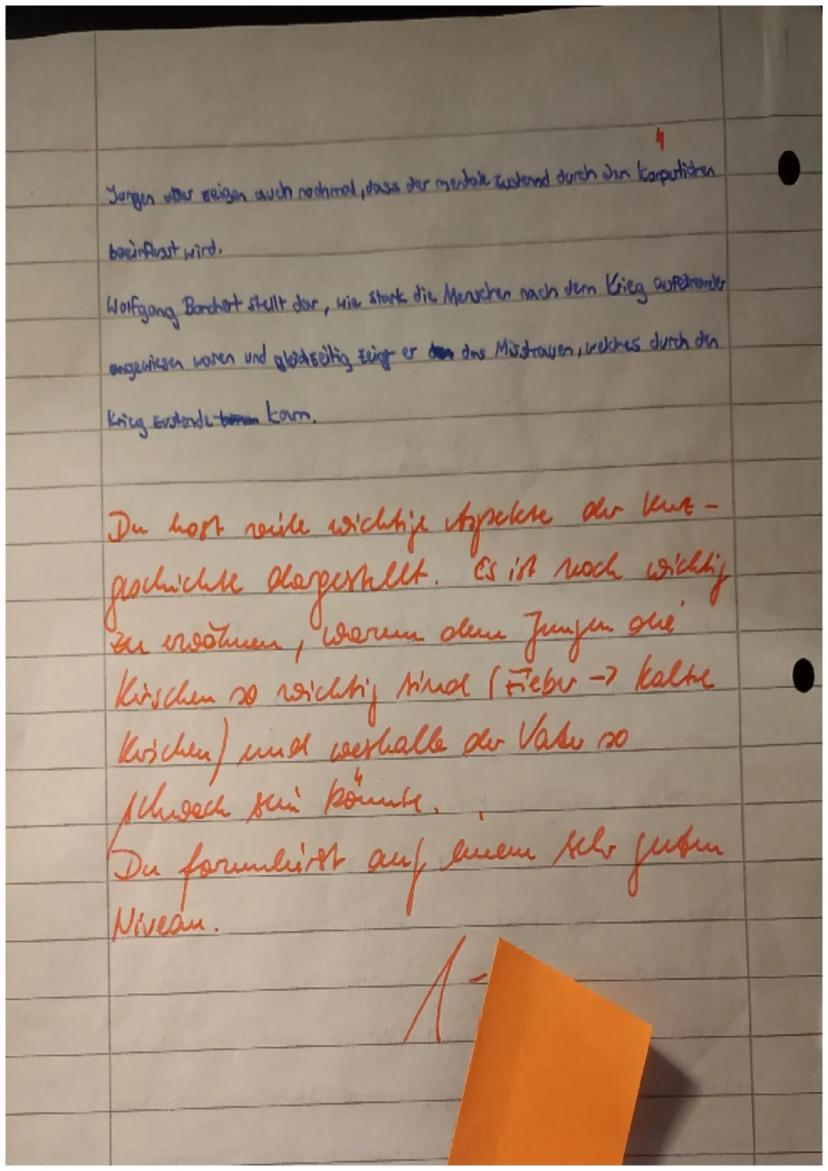 Jungen aber zeigen auch nochmal, dass der mentale Zustand durch den körperlichen
beeinflusst wird.
Wolfgang Borchert stellt dar, wie stark die Menschen nach dem Krieg aufeinander
angewiesen waren und gleichzeitig zeigt er das Misstrauen, welches durch den
Krieg zustande kam.
Du hast viele wichtige Aspekte der Kurz-
geschichte dargestellt. Es ist noch wichtig
zu erwähnen, warum dem Jungen die
Kirschen so wichtig sind (Fieber -> kalte
Kirschen) und weshalb der Vater so
schwach sein könnte.
Du formulierst auf einem sehr guten
Niveau.
1-